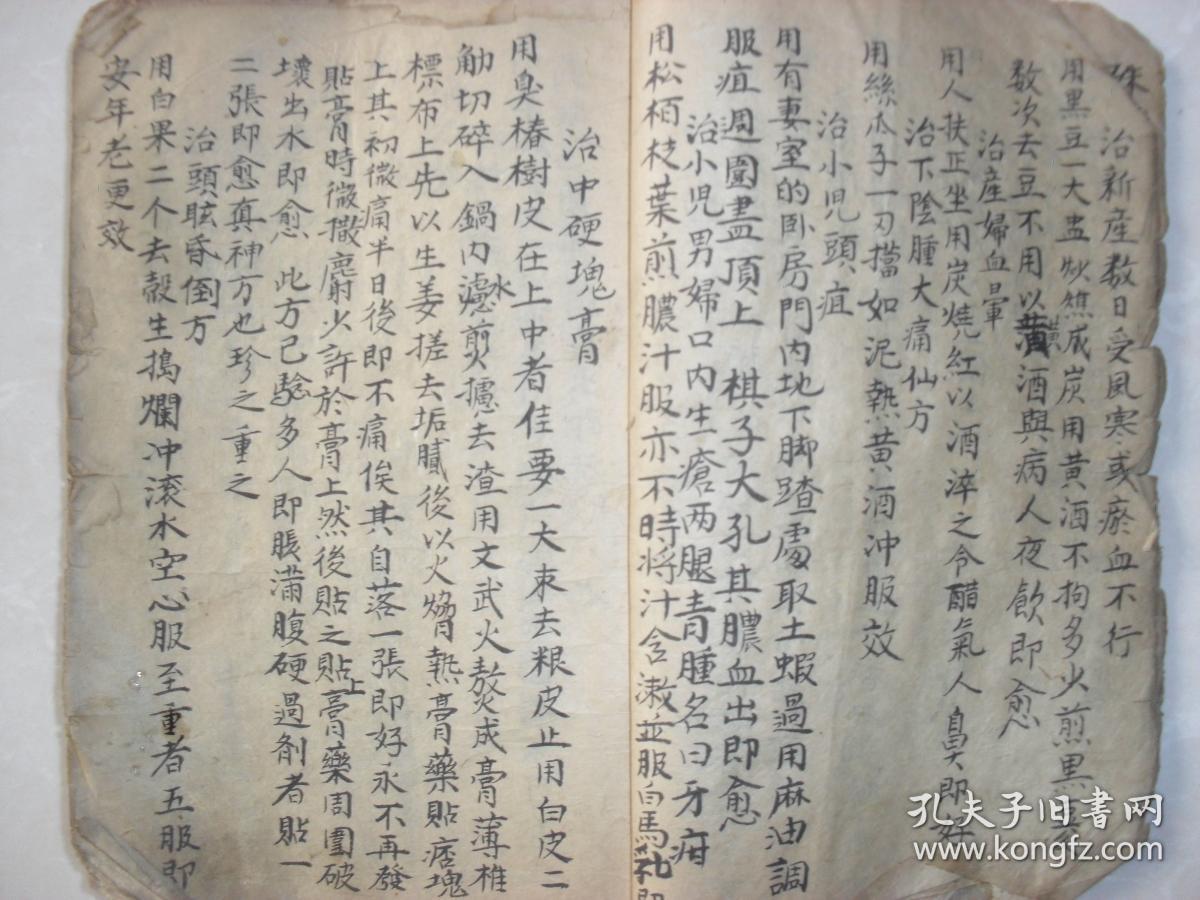 治新産数日受風寒或瘀血不行
用黑豆一大盅炒焦成炭用黄酒不拘多火煎黑
数次去豆不用以黄酒與病人夜飲即愈
治産婦血暈
用人扶正坐用炭燒紅以酒淬之令醋氣人鼻即好
治下陰腫大痛仙方
用絲瓜子一刃擂如泥熱黄酒冲服效
治小児頭疽
用有妻室的卧房門内地下脚蹅處取土蝦過用麻油調
服疽週圍盖頂上棋子大孔其膿血出即愈
治小児男婦口内生瘡两腿青腫名曰牙疳
用松栢枝葉煎膿汁服亦不時将汁含漱並服白馬
治中硬塊膏
用臭椿樹皮在上中者佳要一大束去粮皮止用白皮二
觔切碎入鍋内水濾煎攄去渣用文武火熬成膏薄椎
標布上先以生姜搓去垢膩後以火熁熱膏藥貼痞塊
上其初微痛半日後即不痛俟其自落一張即好永不再發
貼膏時微撒麝少許於膏上然後貼之貼上膏藥周圍破
壞出水即愈此方已驗多人即脹滿腹硬過劑者貼一
二張即愈真神方也珍之重之
治頭眩昏倒方
用白果二个去殼生搗爛冲滚水空心服至重者五服即
安年老更效
孔夫子旧书网
www.kongfz.com